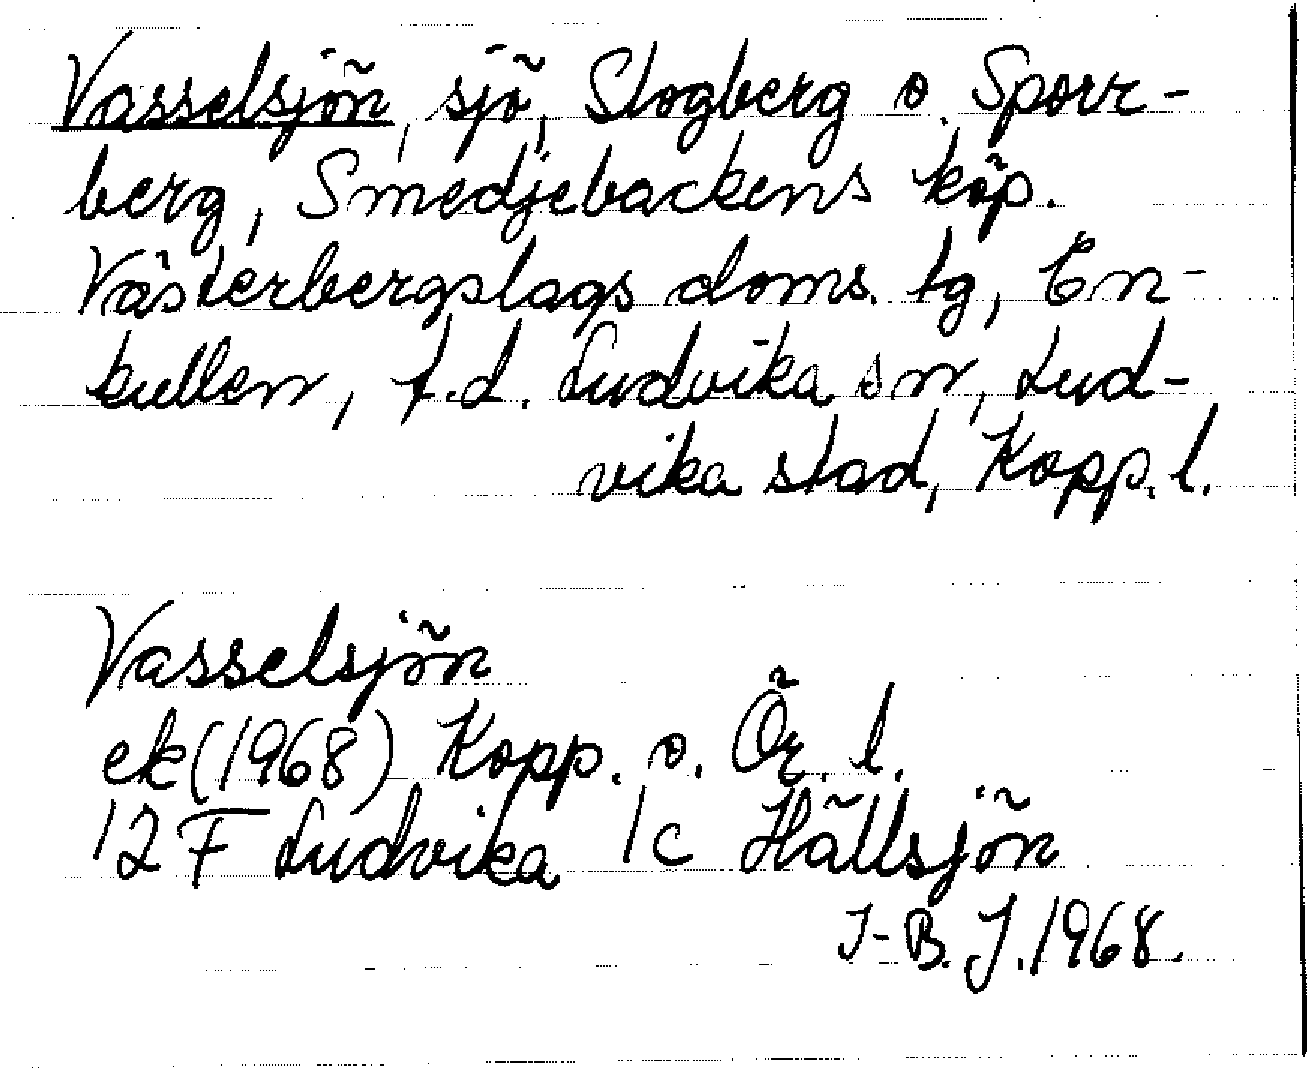 Vasselsjön, sjö, Slogberg o. Sporr-
berg, Smedjebackens köp.
Västerbergslags doms. tg, En-
kullen, f.d. Ludvika sn, Lud-
vika stad, Kopp. l.
Vasselsjön
ek(1968) Kopp. o. Ör. l.
12 F Ludvika 1c Hällsjön
I-B. J. 1968.